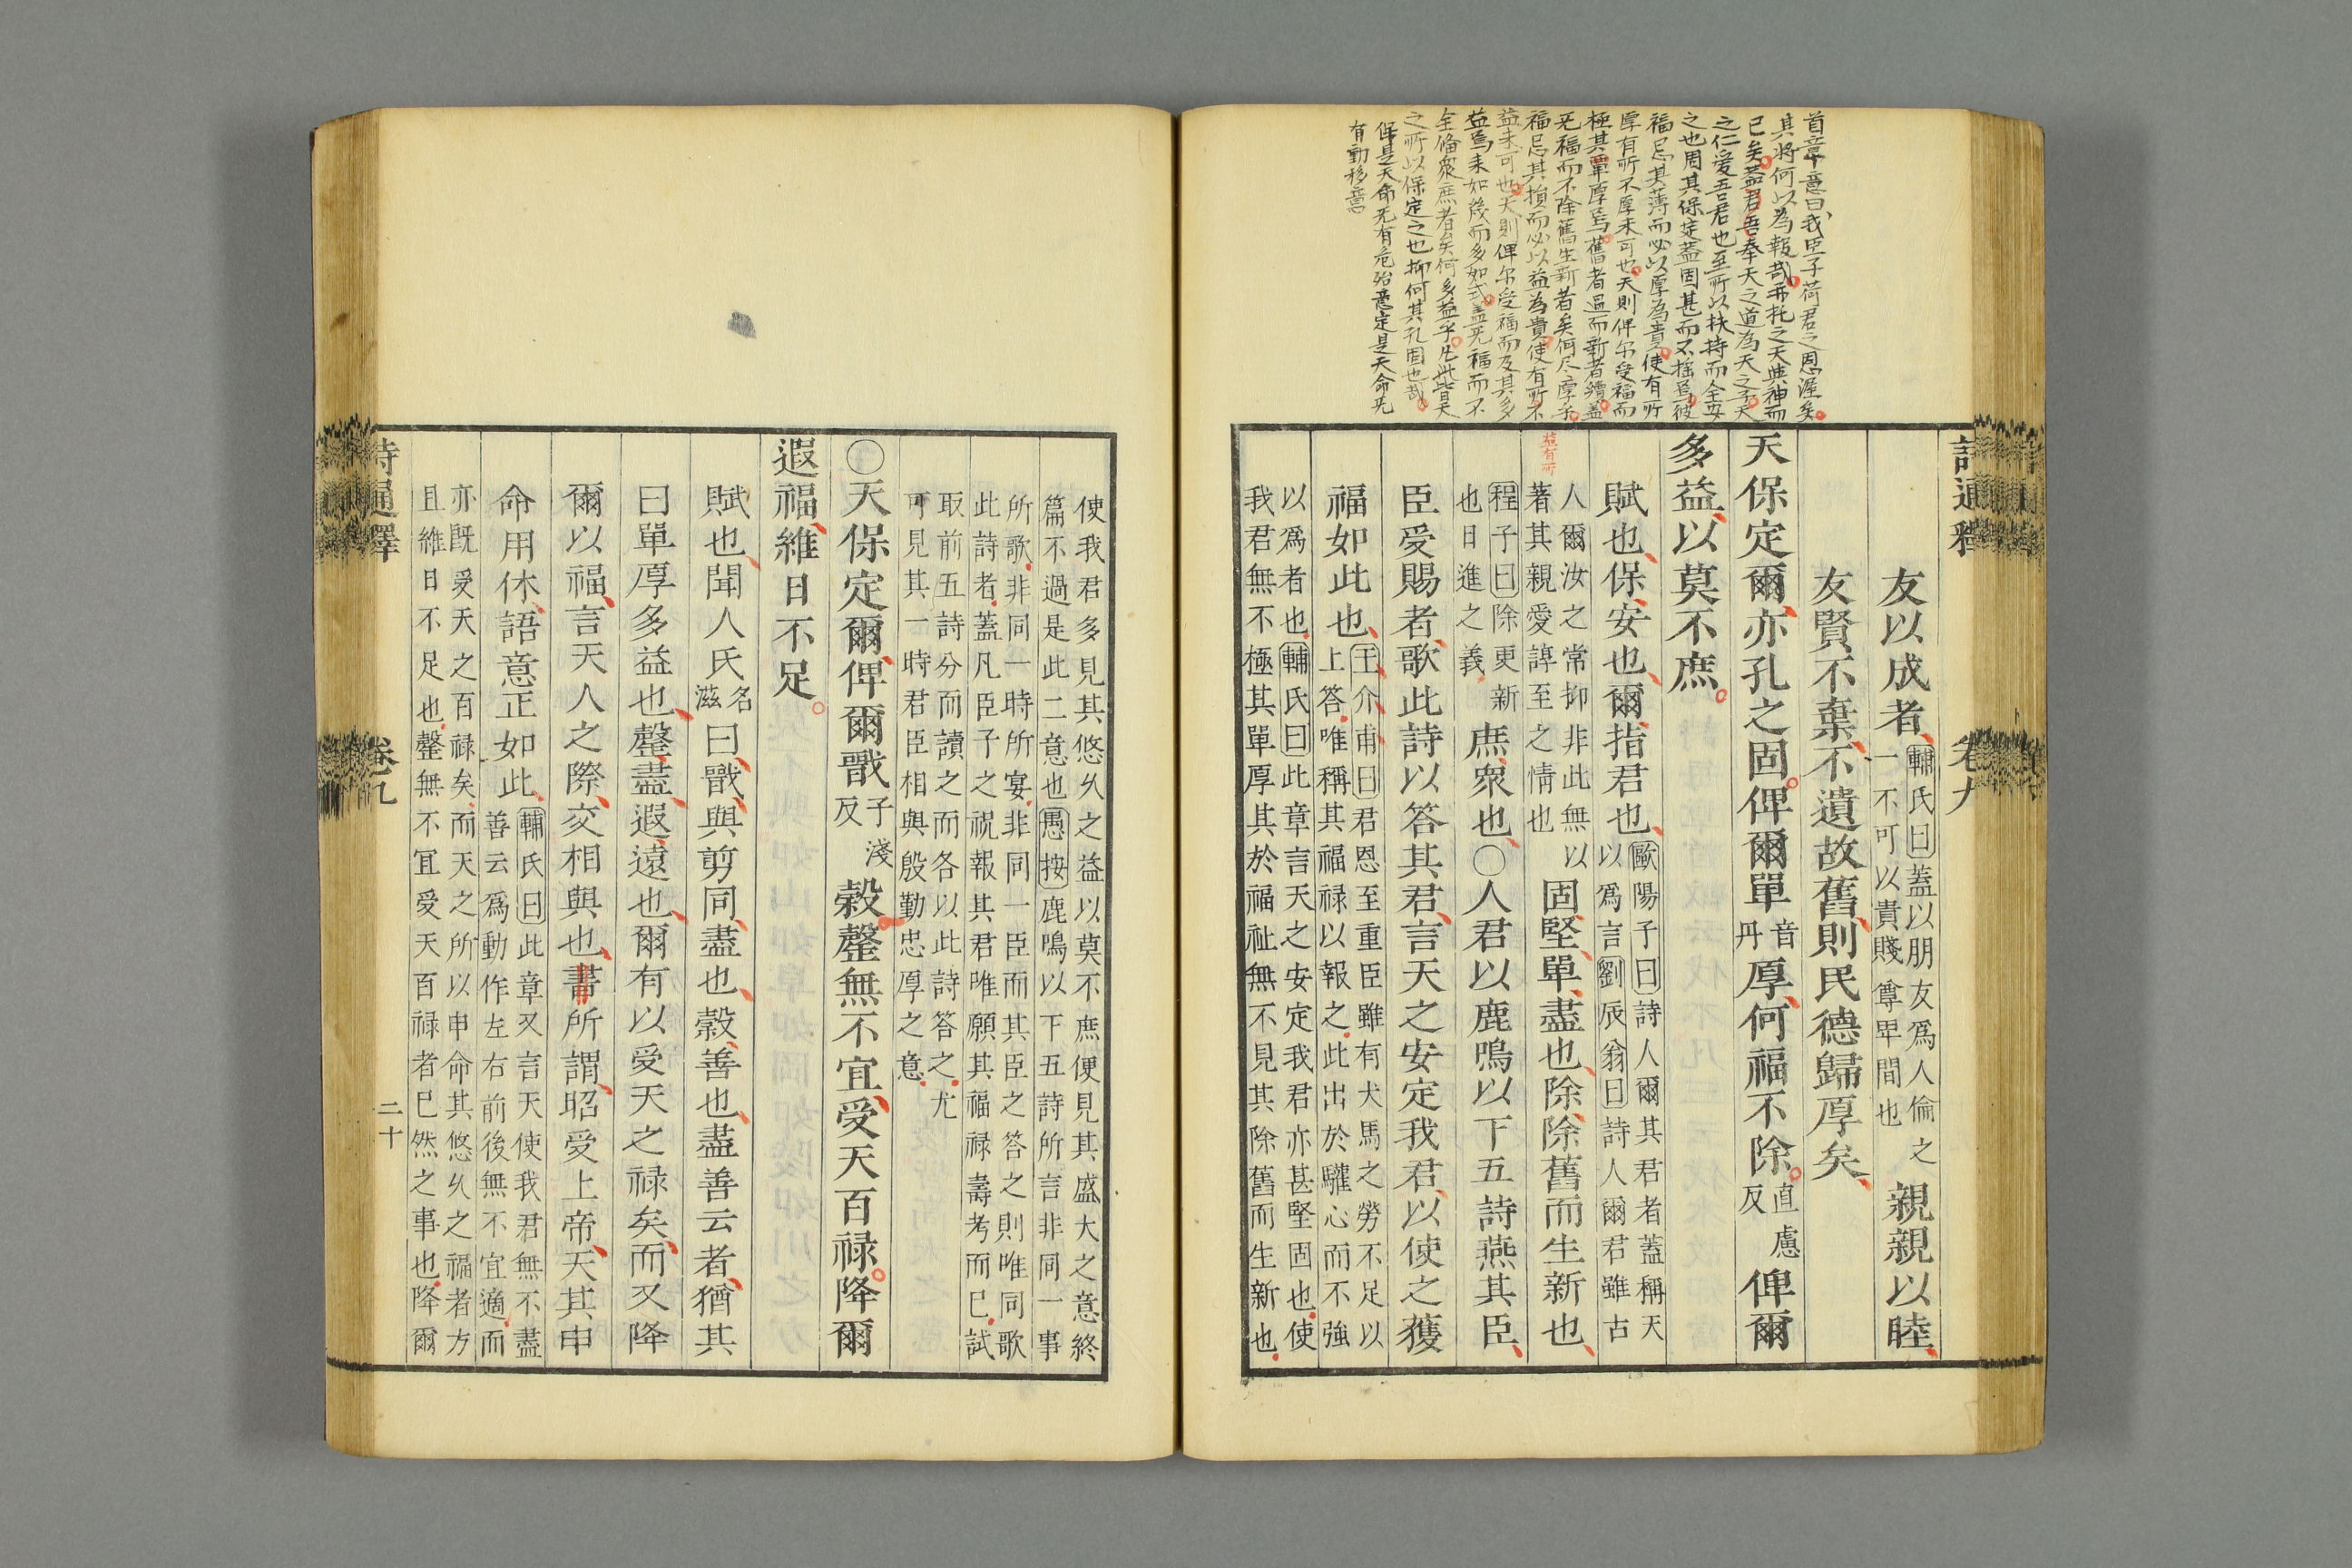 首章意曰我臣子荷君之恩渥矣
其將何以為報哉再托之天與神而
已矣蓋君吾奉天之道為天之子天
之仁愛吾君也至所以扶持而全安
之也周其保定蓋固甚而不搖焉彼
福忌其薄而必以厚為貴使有所
厚有所不厚未可也天則俾尔受福而
極其單厚焉舊者過而新者續蓋
无福而不除舊生新者矣何尽厚乎
福忌其損而必以益為貴使有所不
益未可也天則俾尔受福而及其多
益焉未如幾而多如式蓋无福而不
全俻衆庶者矣何多益乎凡此皆天
之所以保定之也抑何其孔固也哉
保是天命无有危殆意定是天命无
有動移意
詩通釋 卷九
友以成者輔氏曰蓋以朋友爲人倫之
一不可以貴賤尊卑間也親親以睦
友賢不棄不遺故舊則民德歸厚矣
天保定爾亦孔之固俾爾單音
丹厚何福不除直慮
反俾爾
多益以莫不庶
賦也保安也爾指君也歐陽子曰詩人爾其君者蓋稱天
以爲言劉辰翁曰詩人爾君雖古
人爾汝之常抑非此無以
著其親愛諄至之情也固堅單盡也除除舊而生新也
益有所
程子曰除更新
也日進之義庶衆也〇人君以鹿鳴以下五詩燕其臣
臣受賜者歌此詩以答其君言天之安定我君以使之獲
福如此也王介甫曰君恩至重臣雖有犬馬之勞不足以
上答唯稱其福禄以報之此出於驩心而不強
以爲者也輔氏曰此章言天之安定我君亦甚堅固也使
我君無不極其單厚其於福祉無不見其除舊而生新也
使我君多見其悠久之益以莫不庶便見其盛大之意終
篇不過是此二意也愚按鹿鳴以下五詩所言非同一事
所歌非同一時所宴非同一臣而其臣之答之則唯同歌
此詩者蓋凡臣子之祝報其君唯願其福禄壽考而已試
取前五詩分而讀之而各以此詩答之尤
可見其一時君臣相與殷勤忠厚之意
〇天保定爾俾爾戩子淺
反榖罄無不宜受天百禄降爾
遐福維日不足
賦也聞人氏名
滋曰戩與剪同盡也榖善也盡善云者猶其
曰單厚多益也罄盡遐遠也爾有以受天之禄矣而又降
爾以福言天人之際交相與也書所謂昭受上帝天其申
命用休語意正如此輔氏曰此章又言天使我君無不盡
善云爲動作左右前後無不宜適而
亦既受天之百禄矣而天之所以申命其悠久之福者方
且維日不足也罄無不宜受天百禄者已然之事也降爾
詩通釋 卷九 二十